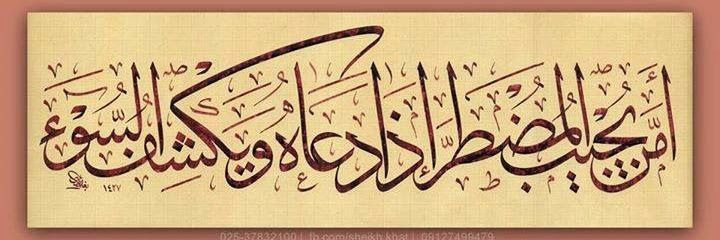 أَمَّنْ يُجِيبُ الْمُضْطَرَّ إِذَا دَعَاهُ وَيَكْشِفُ السُّوءَ
١٤٢٧
025-37832100 | fb.com/sheikh.khat | 09127499479